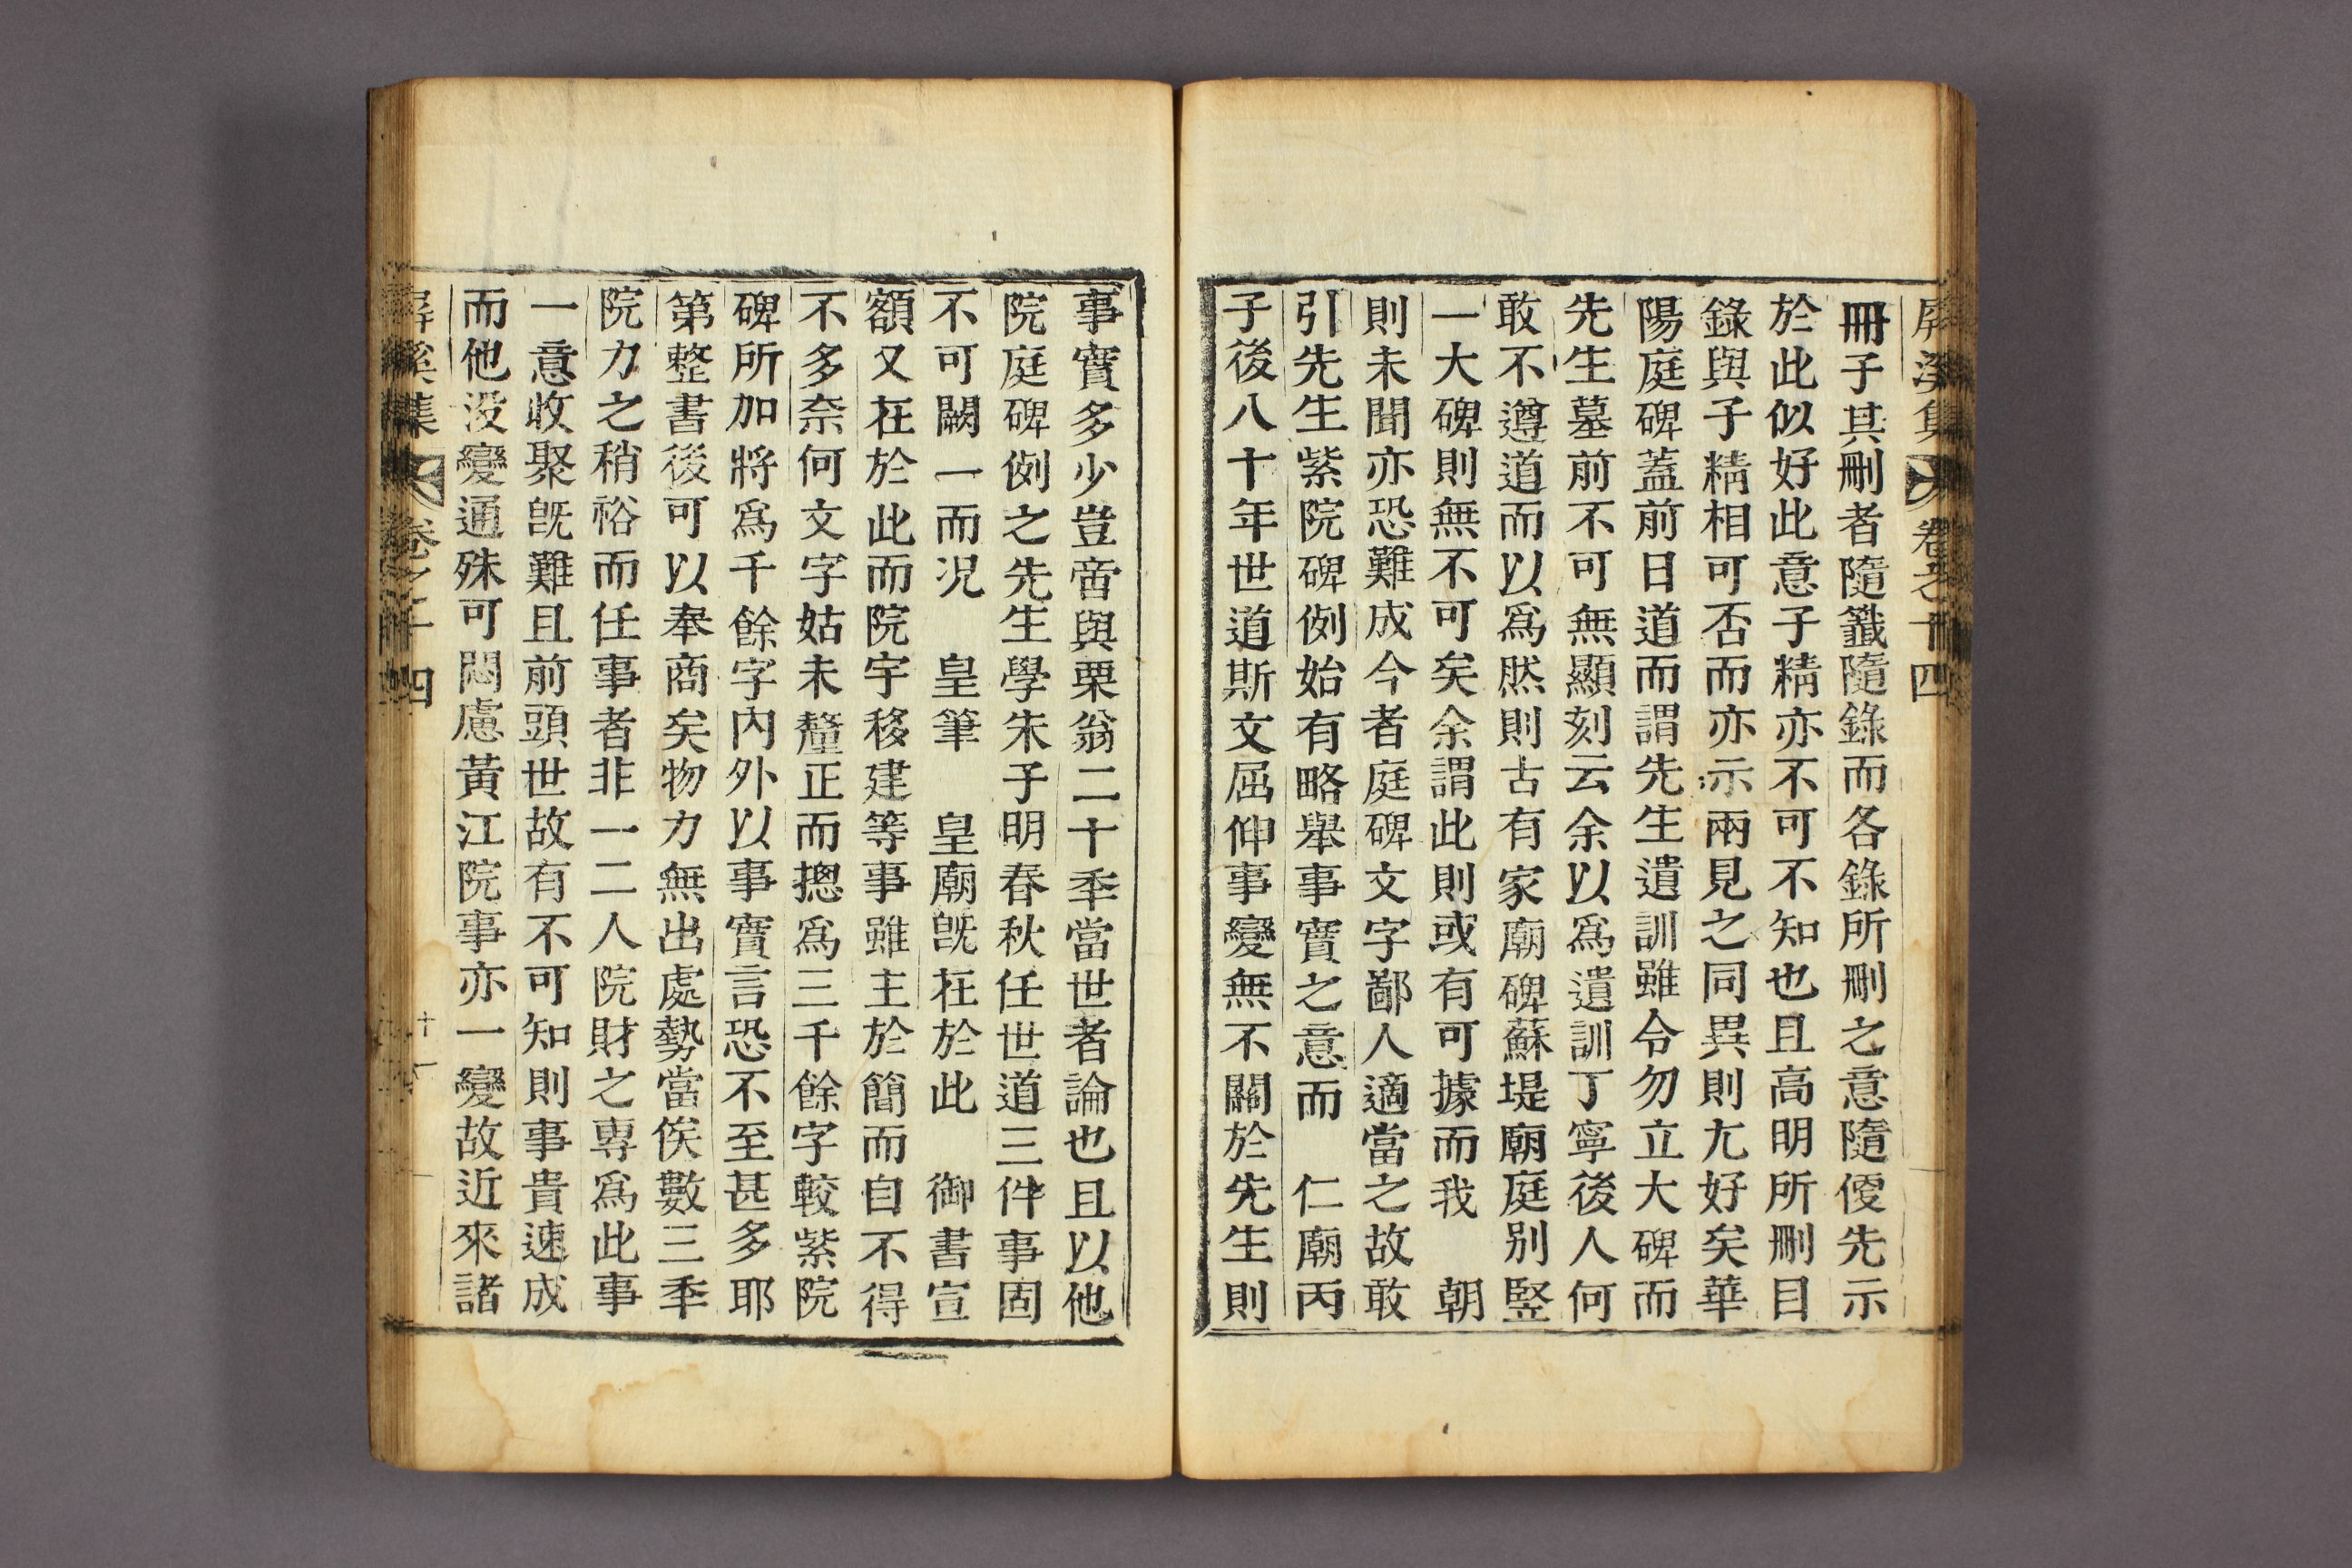 屏溪集 卷之十四
冊子其刪者隨籤隨錄而各錄所刪之意隨優先示
於此似好此意子精亦不可不知也且高明所刪目
錄與子精相可否而亦示兩見之同異則尤好矣華
陽庭碑蓋前日道而謂先生遺訓雖令勿立大碑而
先生墓前不可無顯刻云余以爲遺訓丁寧後人何
敢不遵道而以爲然則古有家廟碑蘇堤廟庭別竪
一大碑則無不可矣余謂此則或有可據而我 朝
則未聞亦恐難成今者庭碑文字鄙人適當之故敢
引先生紫院碑例始有略舉事實之意而 仁廟丙
子後八十年世道斯文屈伸事變無不關於先生則
事實多少豈啻與栗翁二十秊當世者論也且以他
院庭碑例之先生學朱子明春秋任世道三件事固
不可闕一而況 皇筆 皇廟旣在於此 御書宣
額又在於此而院宇移建等事雖主於簡而自不得
不多奈何文字姑未釐正而摠爲三千餘字較紫院
碑所加將爲千餘字內外以事實言恐不至甚多耶
第整書後可以奉商矣物力無出處勢當俟數三秊
院力之稍裕而任事者非一二人院財之專爲此事
一意收聚旣難且前頭世故有不可知則事貴速成
而他沒變通殊可悶慮黃江院事亦一變故近來諸
屏溪集 卷之十四 十一